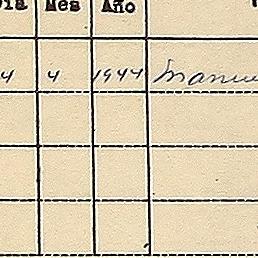 Día Mes Año
4 4 1944 Manu